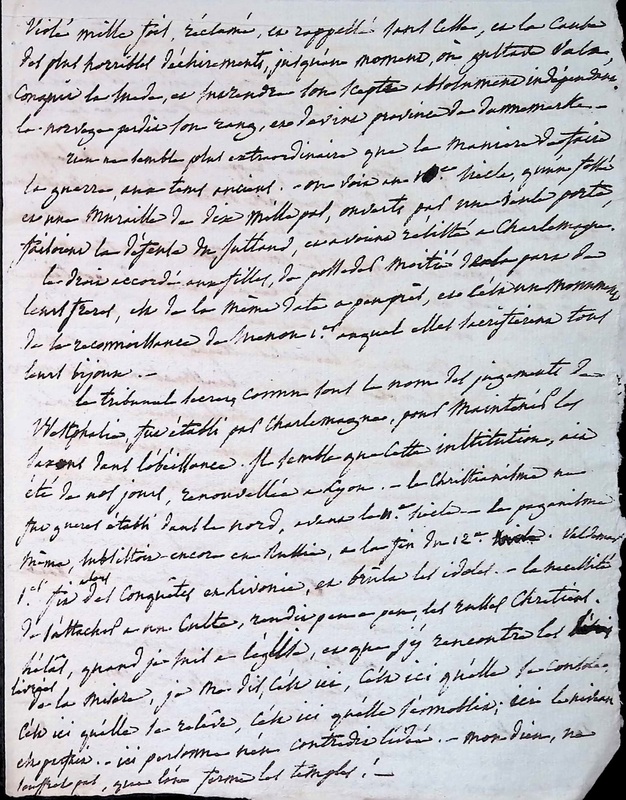 Violé mille fois, réclamé, et rappellé sans cesse, est la cause
des plus horribles déchirements, jusqu'au moment, où gustave Vasa,
Conquit la Suede, et en rendit son sceptre absolument indépendant.
la norvege perdit son rang, et devint province du dannemarke. -
rien ne semble plus extraordinaire que la maniere de faire
la guerre, aux tems anciens. - on voit au siècle, qu'un fossé
et une muraille de dix mille pas, ouverts par une seule porte,
faisoient la défense du Juttand, et avoient résisté a Charlemagne.
le droit accordé aux filles, de posseder moitié de la part de
leurs freres, est de la même date a peu près, et c'est un monument
de la reconnoissance de Suenon 1er auquel elles sacrifierent tous
leurs bijoux. -
le tribunal secret, connu sous le nom des jugements de
Westphalie, fut établi par Charlemagne, pour maintenir les
saxons dans l'obéissance. Il semble que cette institution, ait
été de nos jours, renouvellée a Lyon. - le Christianisme ne
fut gueres établi dans le nord, avant le 11e siècle - le paganisme
même, subsistoit encore en Russie, a la fin du 12e. Valdemar
1er fit alors des Conquêtes en livonie, et brûla les idoles. - la necessité
de s'attacher a un Culte, rendit peu a peu, les russes Chrétiens.
hélas, quand je suis a l'église, et que j'y rencontre les
livrées de la misere, je me dis, c'est ici, c'est ici qu'elle se console,
c'est ici qu'elle se relève, c'est ici qu'elle s'ennoblit; ici le niveau
est propice. - ici personne n'en contredit l'idée. - mon dieu, ne
souffrez pas, que l'on ferme les temples! -